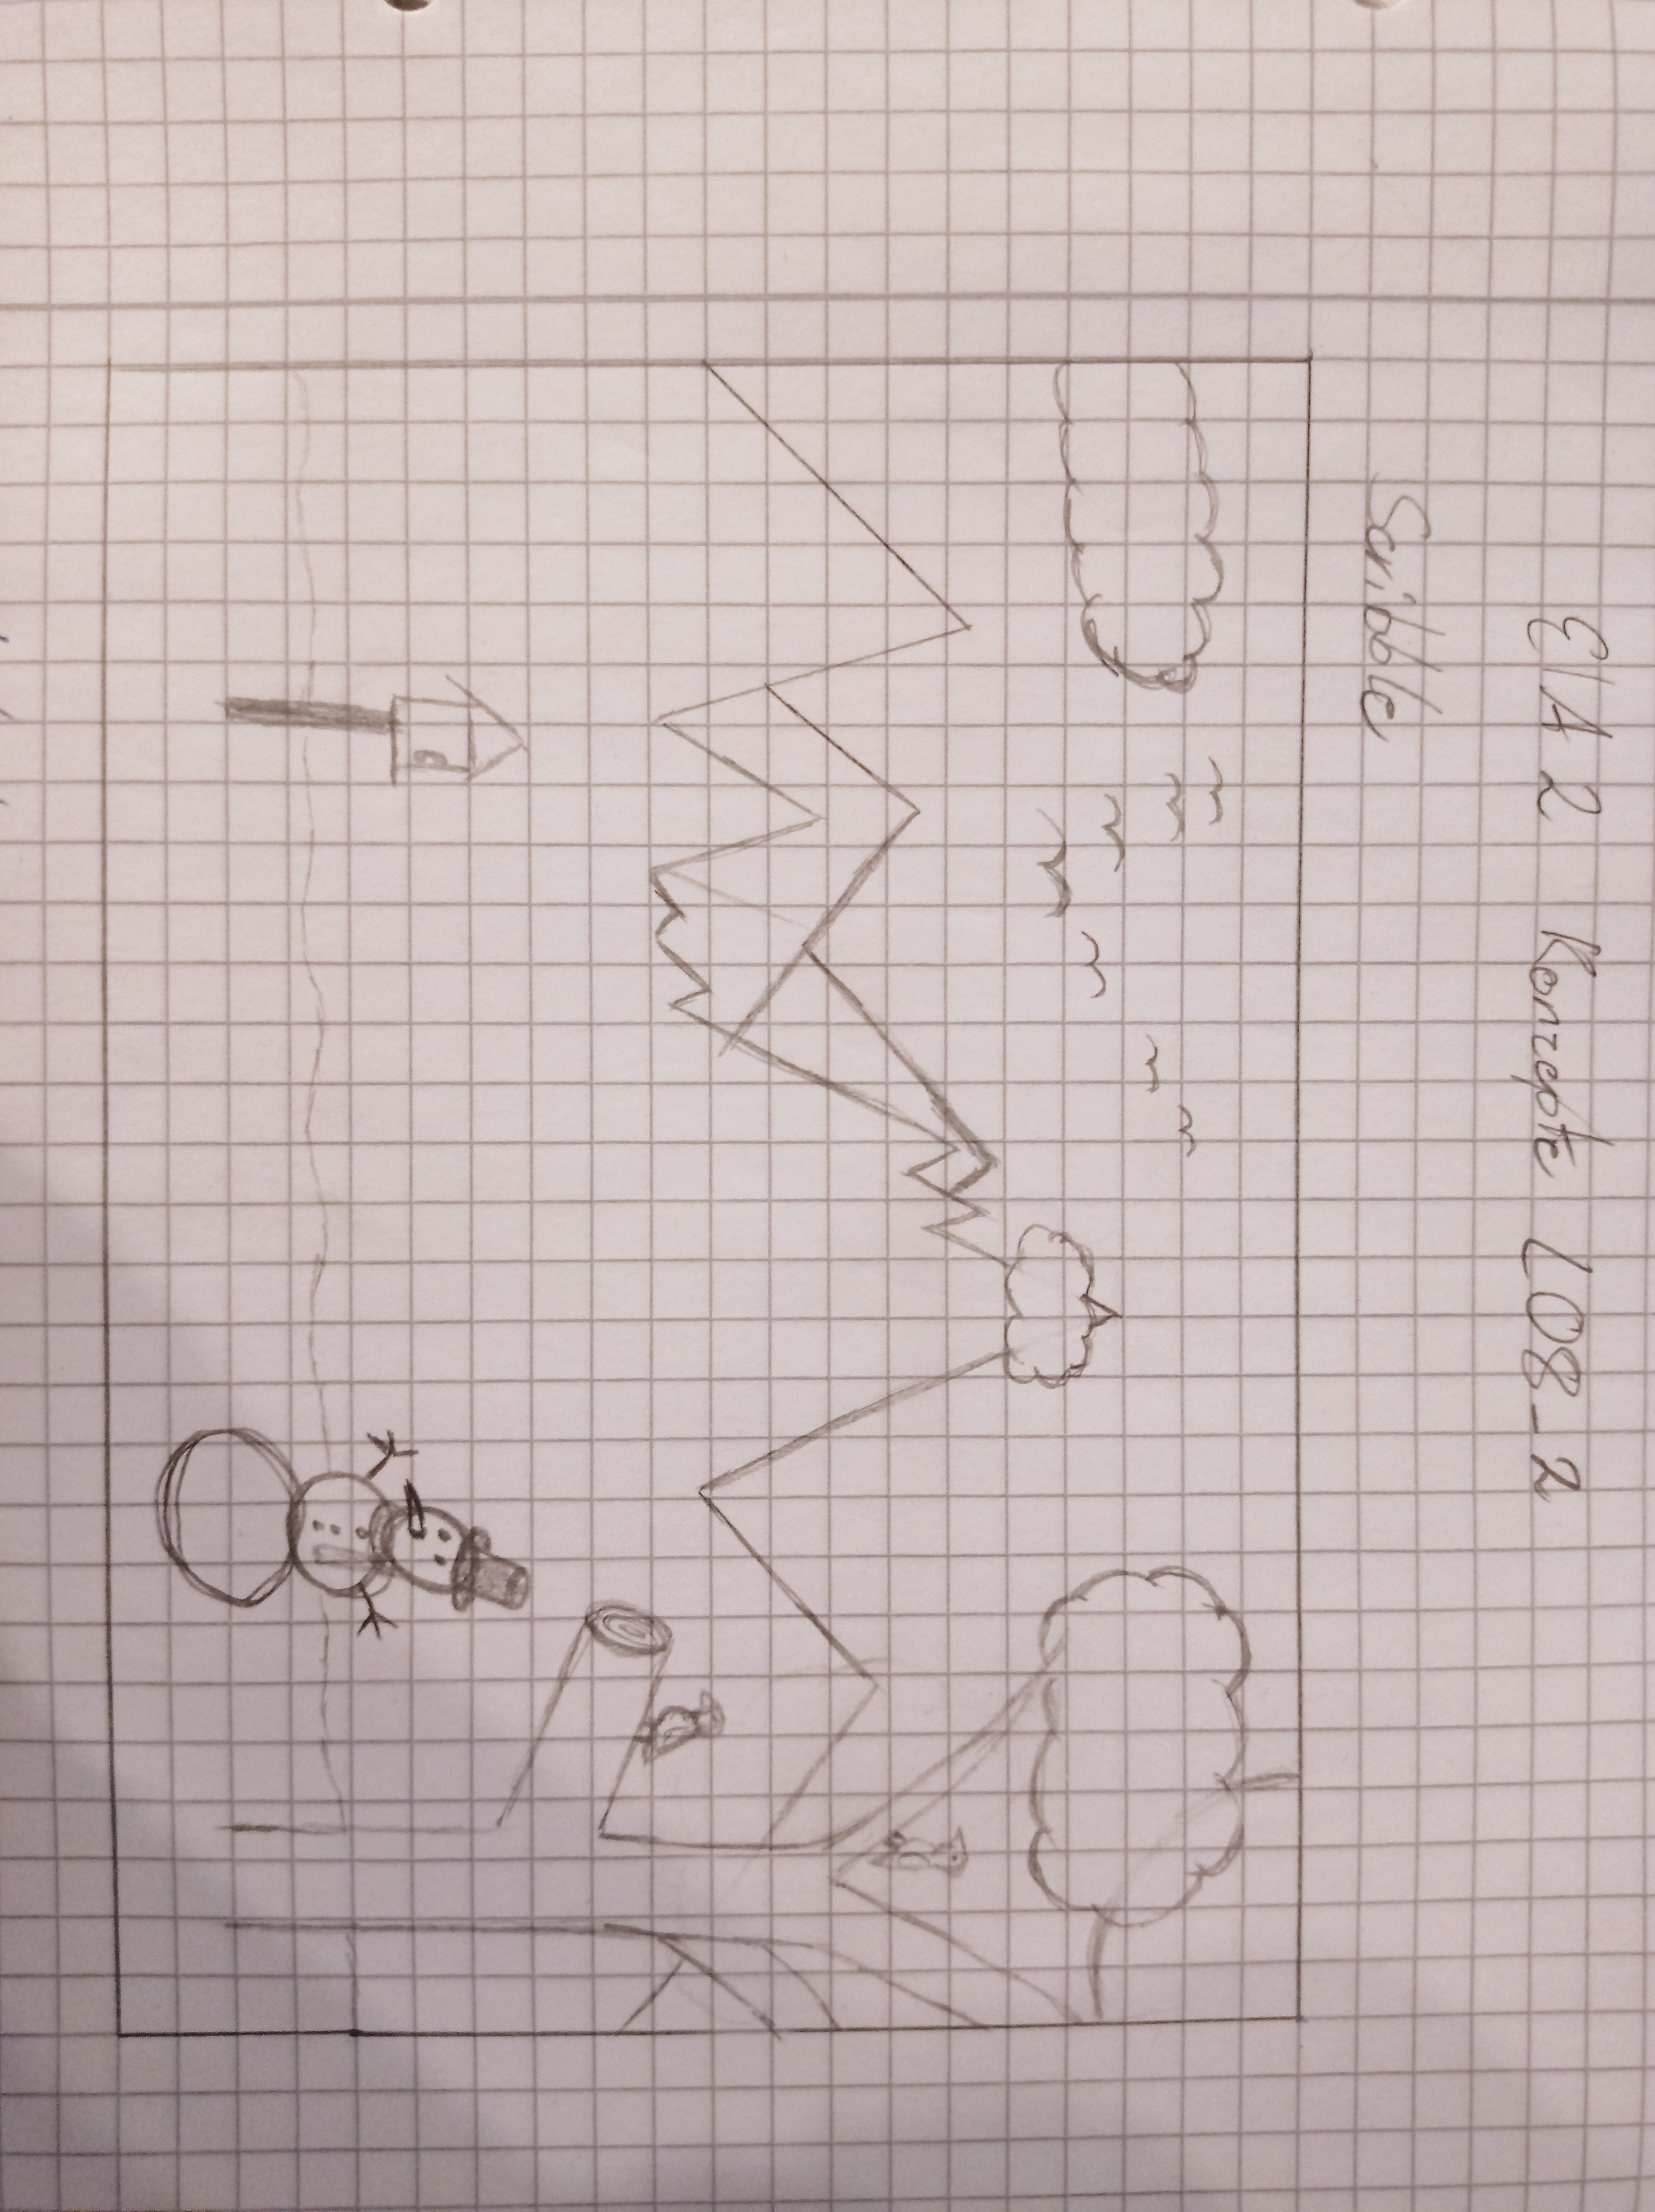 EIA 2 Konzepte L08_2
Scribble